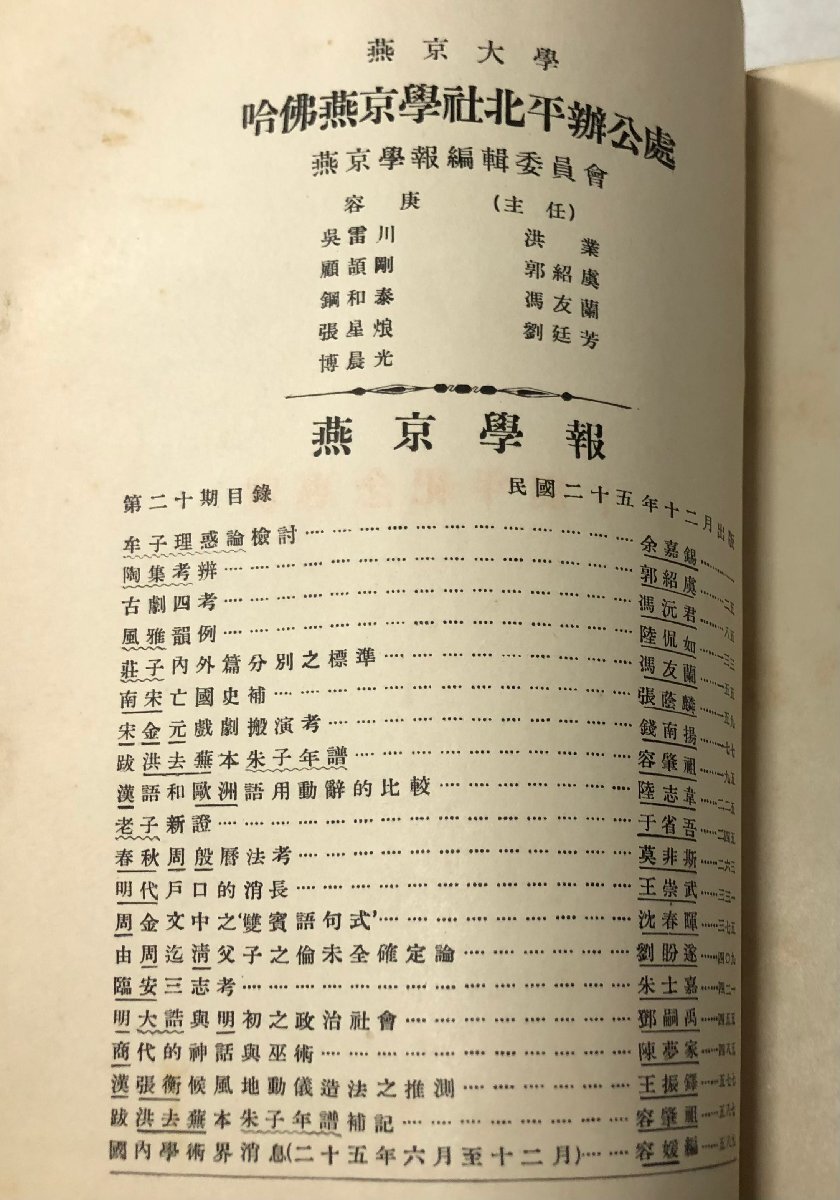 燕京大學
哈佛燕京學社北平辦公處
燕京學報編輯委員會
容庚 (主任)
吳雷川 洪業
顧頡剛 郭紹虞
鋼和泰 馮友蘭
張星烺 劉廷芳
博晨光
燕京學報
第二十期目錄 民國二十五年十二月出版
牟子理惑論檢討 余嘉錫 一
陶集考辨 郭紹虞 二五
古劇四考 馮沅君 八五
風雅韻例 陸侃如 一三三
莊子內外篇分別之標準 馮友蘭 一五五
南宋亡國史補 張蔭麟 一五九
宋金元戲劇搬演考 錢南揚 一七七
跋洪去蕪本朱子年譜 容肇祖 一九五
漢語和歐洲語用動辭的比較 陸志韋 二二五
老子新證 于省吾 二四五
春秋周殷曆法考 莫非斯 二六三
明代戶口的消長 王崇武 三三一
周金文中之‘雙賓語句式’ 沈春暉 三七五
由周迄清父子之倫未全確定論 劉盼遂 四〇九
臨安三志考 朱士嘉 四二一
明大誥與明初之政治社會 鄧嗣禹 四五五
商代的神話與巫術 陳夢家 四八五
漢張衡候風地動儀造法之推測 王振鐸 五七七
跋洪去蕪本朱子年譜補記 容肇祖 五八七
國內學術界消息(二十五年六月至十二月) 容媛編